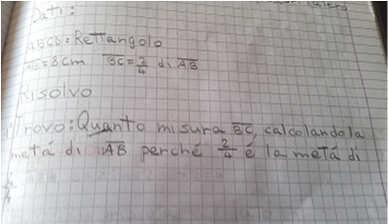 Dati:
ABCD=Rettangolo
AB=8cm BC=2/4 di AB
Risolvo
Trovo: Quanto misura BC, calcolando la
metá di AB perché 2/4 é la metá di